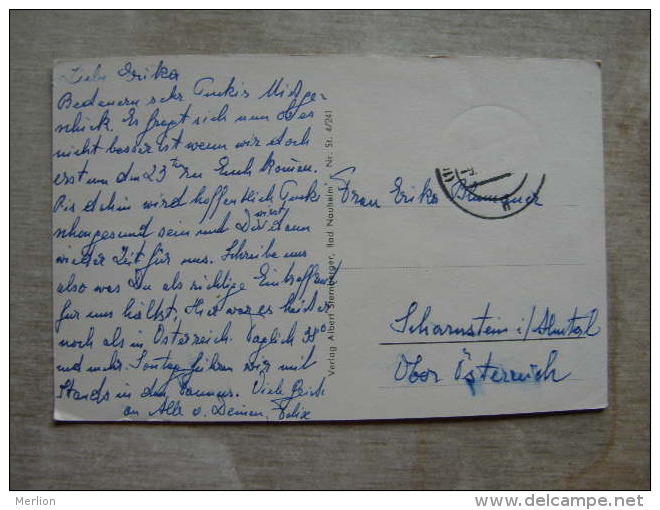 Liebe Erika
Bedauern sehr Puckis Mißge
schick. Es fragt sich nun ob es
nicht besser ist wenn wir doch
erst um den 23ten zu Euch kommen.
Bis dahin wird hoffentlich Pucki
schon gesund sein und Du wirst dann
wieder Zeit für uns. Schreibe uns
also was Du als richtige
für uns hältst. Hier war es heißer
noch als in Österreich. Täglich 38°
und mehr. Sontag fuhren wir mit
in den Taunus. Viele
an Alle v. Deinen Felix
Verlag Albert Sternberger, Bad Nauheim Nr. St. 4/241
Frau Erika
Scharnstein i/Almtal
Ober Österreich
Merlion
http://www.delcampe.net